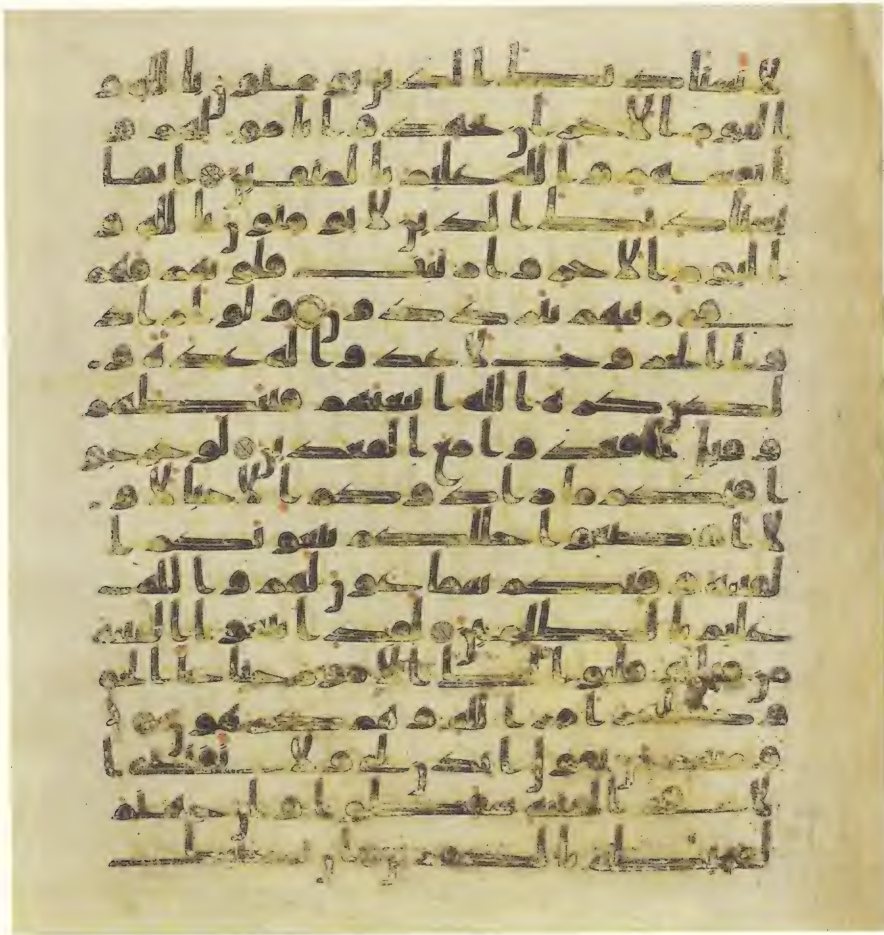 لا يستاذنك الذين يومنون بالله و
اليوم الاخر ان يجهدوا باموالهم و
انفسهم والله عليم بالمتقين انما
يستاذنك الذين لا يومنون بالله و
اليوم الاخر وارتابت قلوبهم فهم
في ريبهم يترددون ولو ارادو
ا الخروج لاعدوا له عدة و
لكن كره الله انبعاثهم فثبطهم
وقيل اقعدوا مع القعدين لو خرجو
ا فيكم ما زادوكم الا خبالا و
لا اوضعوا خللكم يبغونكم ا
لفتنة وفيكم سمعون لهم والله
عليم بالظلمين لقد ابتغوا الفتنة
من قبل وقلبوا لك الامور حتى جا الحق
وظهر امر الله وهم كرهون
ومنهم من يقول ائذن لي ولا تفتني ا
لا في الفتنة سقطوا وان جهنم
لمحيطة بالكفرين ان تصبك